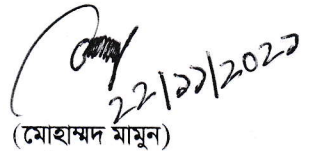 ২২/১১/২০২১
(মোহাম্মদ মামুন)